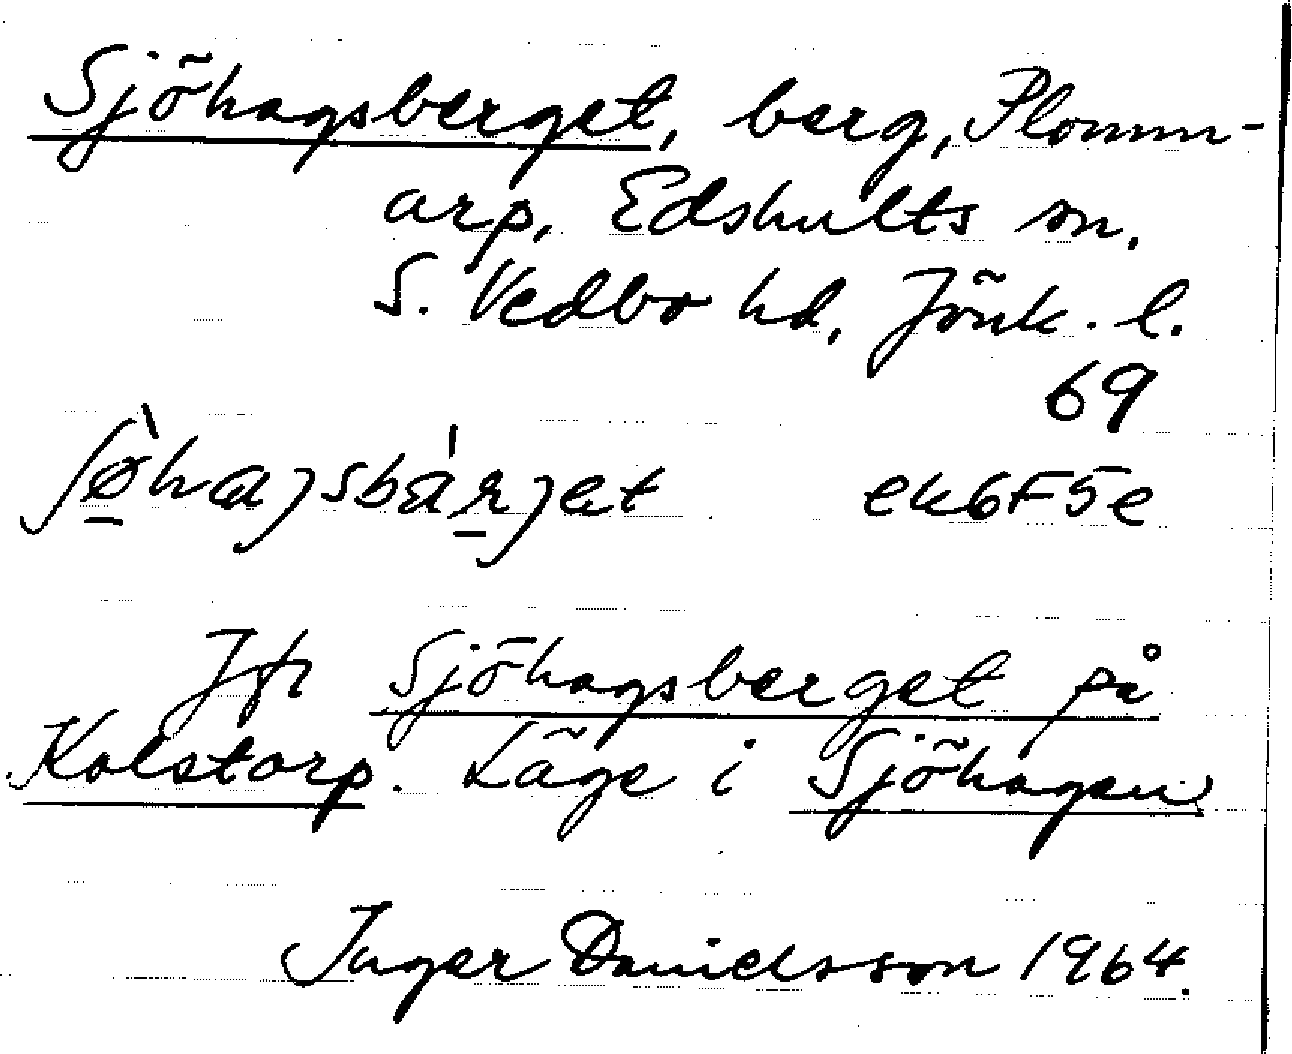 Sjöhagsberget, berg, Plomm-
arp, Edshults sn.
S. Vedbo hd, Jönk. l.
69
ʃø̠̀hɑȷsbár̠ȷet ek6F5e
Jfr Sjöhagsberget på
Kolstorp. Läge i Sjöhagen
Inger Danielsson 1964.